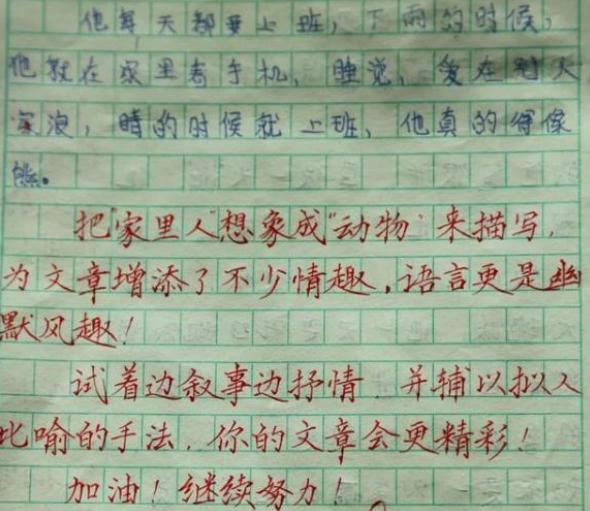 他每天都要上班，下雨的时候，
他就在家里看手机、睡觉，爱在别人
，晴的时候就上班、他真的得像
熊。
把"家里人"想象成"动物"来描写，
为文章增添了不少情趣，语言更是幽
默风趣！
试着边叙事边抒情，并辅以拟人
比喻的手法，你的文章会更精彩！
加油！继续努力！